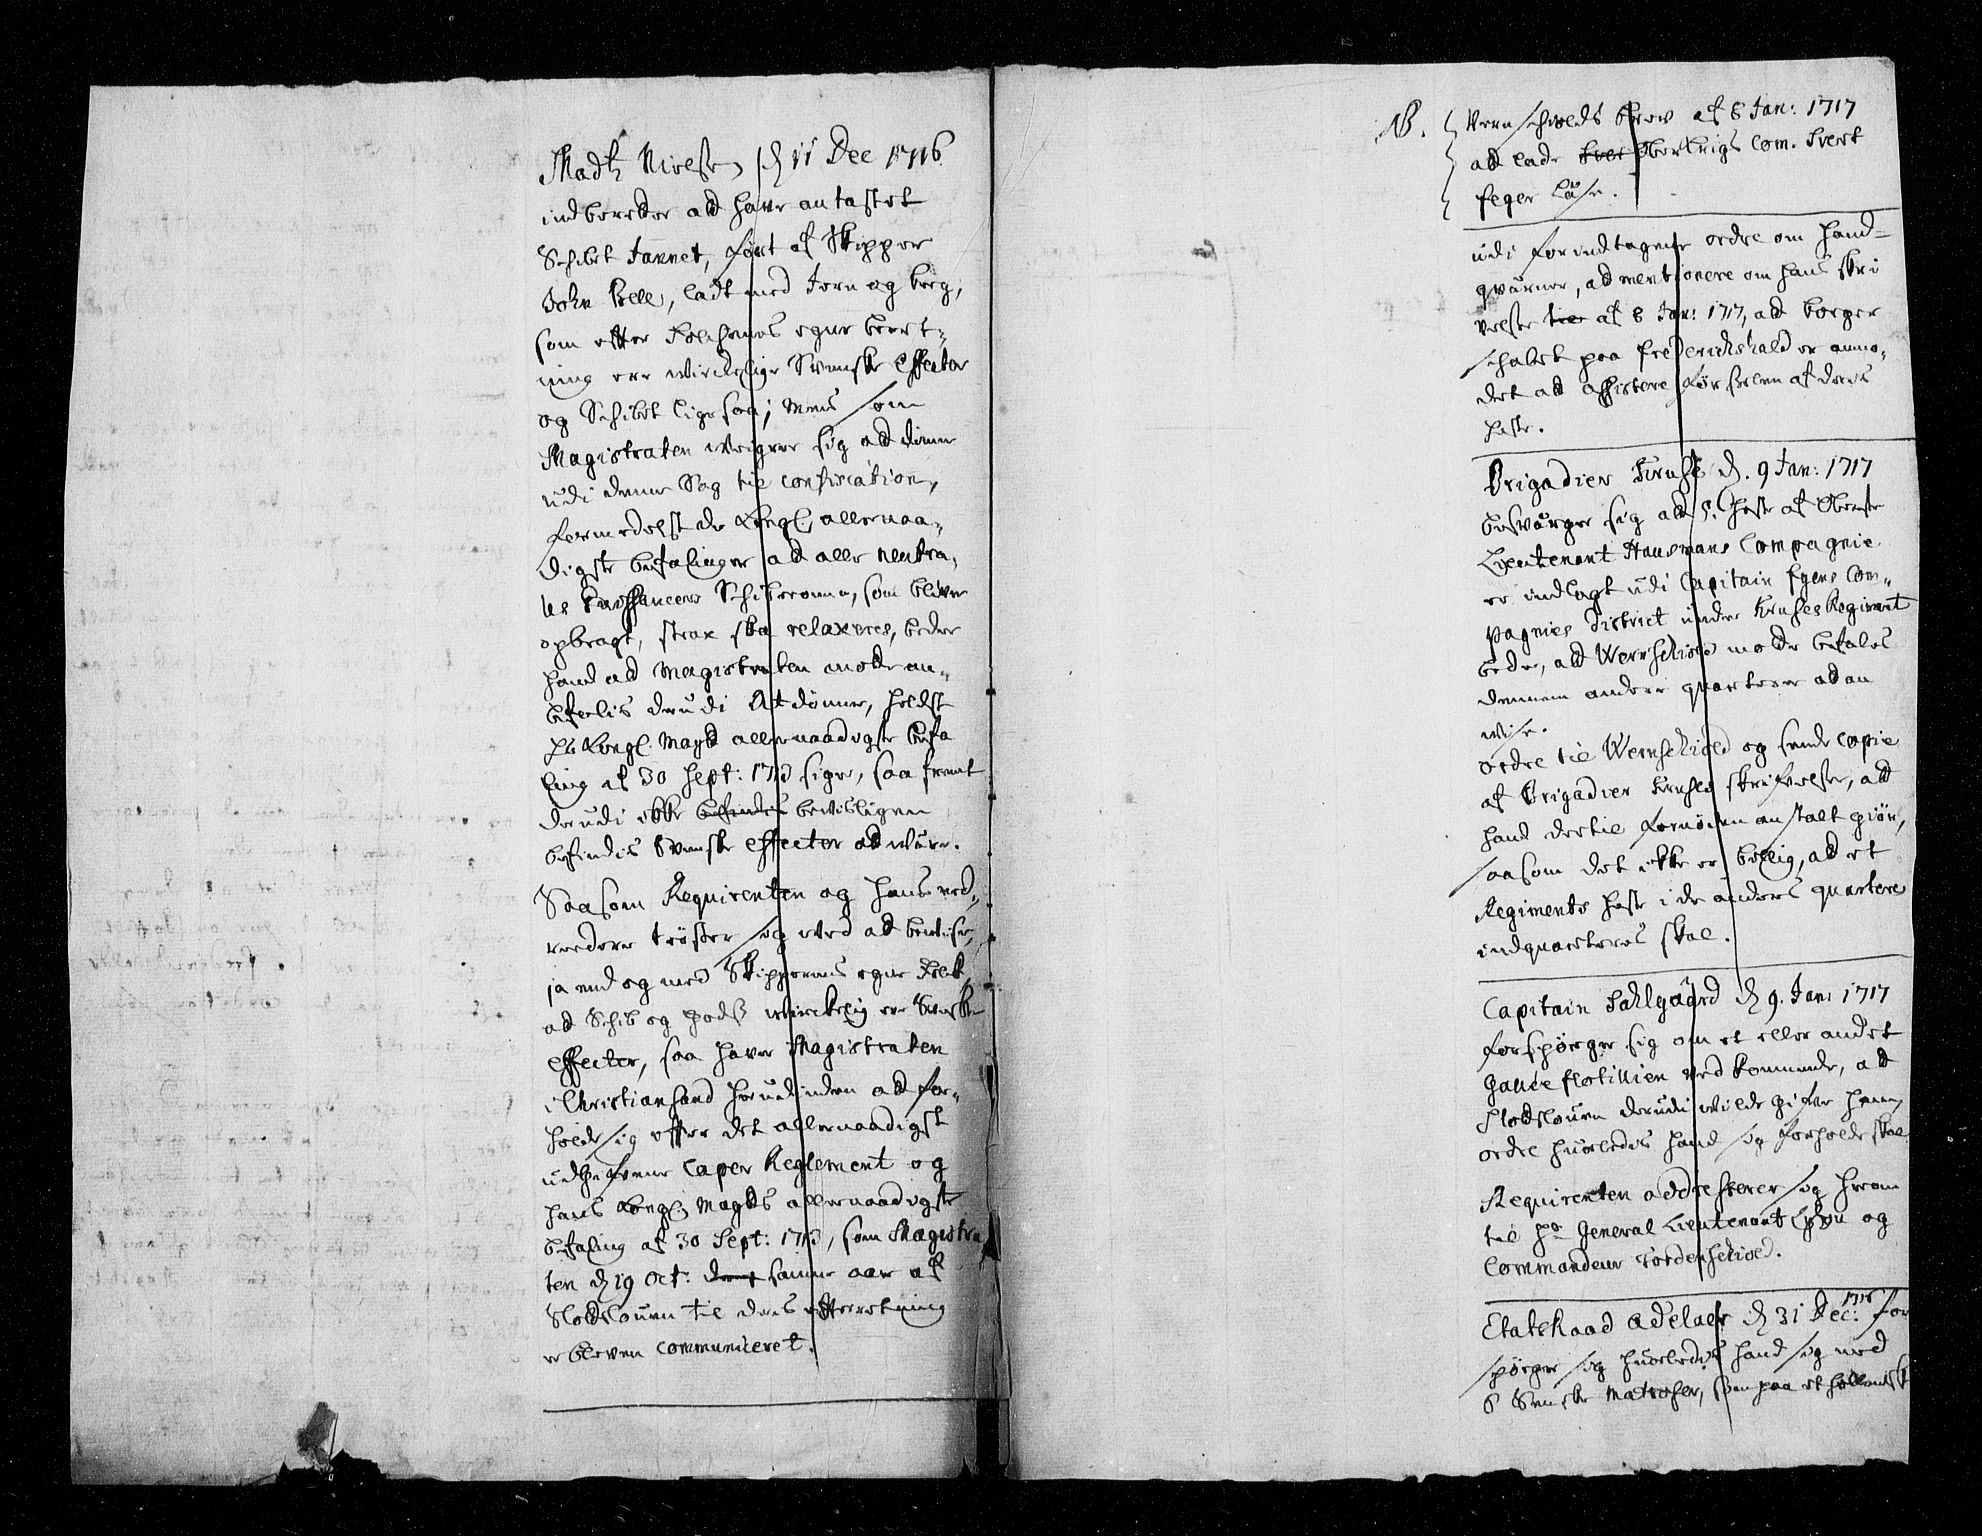 Madtz Nielsen, d. 11 Dec 1716.
indberetter at have antastet
Schibet Jannet, ført af Skipper
John Bell, ladt med Jern og berg,
som efter Folchenes egne beret-
ning ere wirckelige Svenske Effecter
og Schibet lige saa; Mens som
Magistraten weigrer sig ad dømme
udi denne Sag til confiscation,
formedelst de Kongl. allernaa-
digste befalinger ad alle neutra-
les Schibberomme, som bliver
opbragt, strax skal relaxeres, beder
hand ad Magistraten motte an-
befalis derudi At dømme, heldst
Hs Kongl. Maÿts allernaadigste befa
ling af 30 Sept: siger, saa fremt
derudi ikke befindes bewisligen
befindis Svenske effecter ad wære.
Saasom Requirenten og hans med-
reedere trøster sig wed ad bewise,
ja end og med Skipperens egne Folk,
ad Schib og godß wirckelig ere Svenske
effecter, saa haver Magistraten
i Christiansand herudinden ad for-
holde sig efter det allernaadigst
udgifvene Caper Reglement og
hans Kongl. Maÿts allernaadigste
befaling af 30 Sept:, som Magistra
ten d. 19 Oct: samme aar af
Slodslouen til deris efterretning
er bleven communiceret.
NB. Wernschiolds brev af 8 Jan: 1717
ad lade Oberkrigs Com. Svert
feger læse.
udi forindtagne ordre om Hand-
qværner, ad mentionere om hans skri
velse til af 8 Jan: 1717, ad borger
schabet paa Frederichshald er anmo-
det ad assistere Førselen af deres
heste.
Brigadier Kruse d. 9 Jan: 1717
besværger sig ad 5. heste af Oberste
Lieutenant Hausmans Compagnie
er indlagt udi Capitain Com-
pagnies District under Kruses Regiment
beder, ad Wernschiold motte befales
dennem andere quarterer ad an
wise.
ordre til Wernschiold og sende copie
af Brigadier Kruses skrifvelse, ad
hand dertil fornøden anstalt giør,
saasom det ikke er billig, ad et
Regiments heste i de anders quartere
indquarteres skal.
Capitain Dahlgaard d. 9. Jan: 1717
forspørger sig om et eller andet
Galleÿ flotillien wed kommende, ad
Slodslouen derudi wilde gifve ham
ordre huorledis hand sig forholde skal.
Requirenten addresserer sig herom
til Hr. General Lieutenant Lützou og
Commandeur Tordenschiold.
Etatsraad Adelaer d. 31 Dec: 1716 for
spørger sig huorledis hand sig med
8 Svenske Matroser, som paa et hollandsk